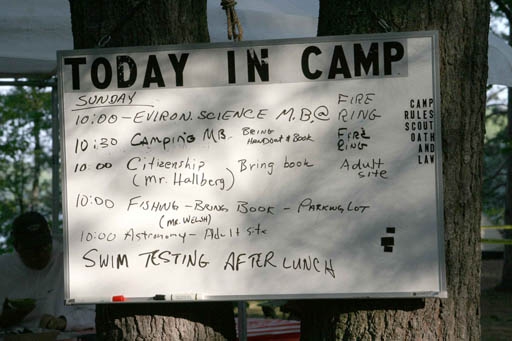 TODAY IN CAMP
SUNDAY
10:00 - EVIRON. SCIENCE M.B. @ FIRE RING
10:30 CAMPING M.B. BEING HANDOUT & BOOK FIRE RING
10:00 Citizenship Bring book Adult site
(Mr. Hallberg)
10:00 FISHING - BRING BOOK - PARKING LOT
(MR. WELSH)
10:00 Astronomy - Adult site
SWIM TESTING AFTER LUNCH
CAMP
RULES
SCOUT
OATH
AND
LAW